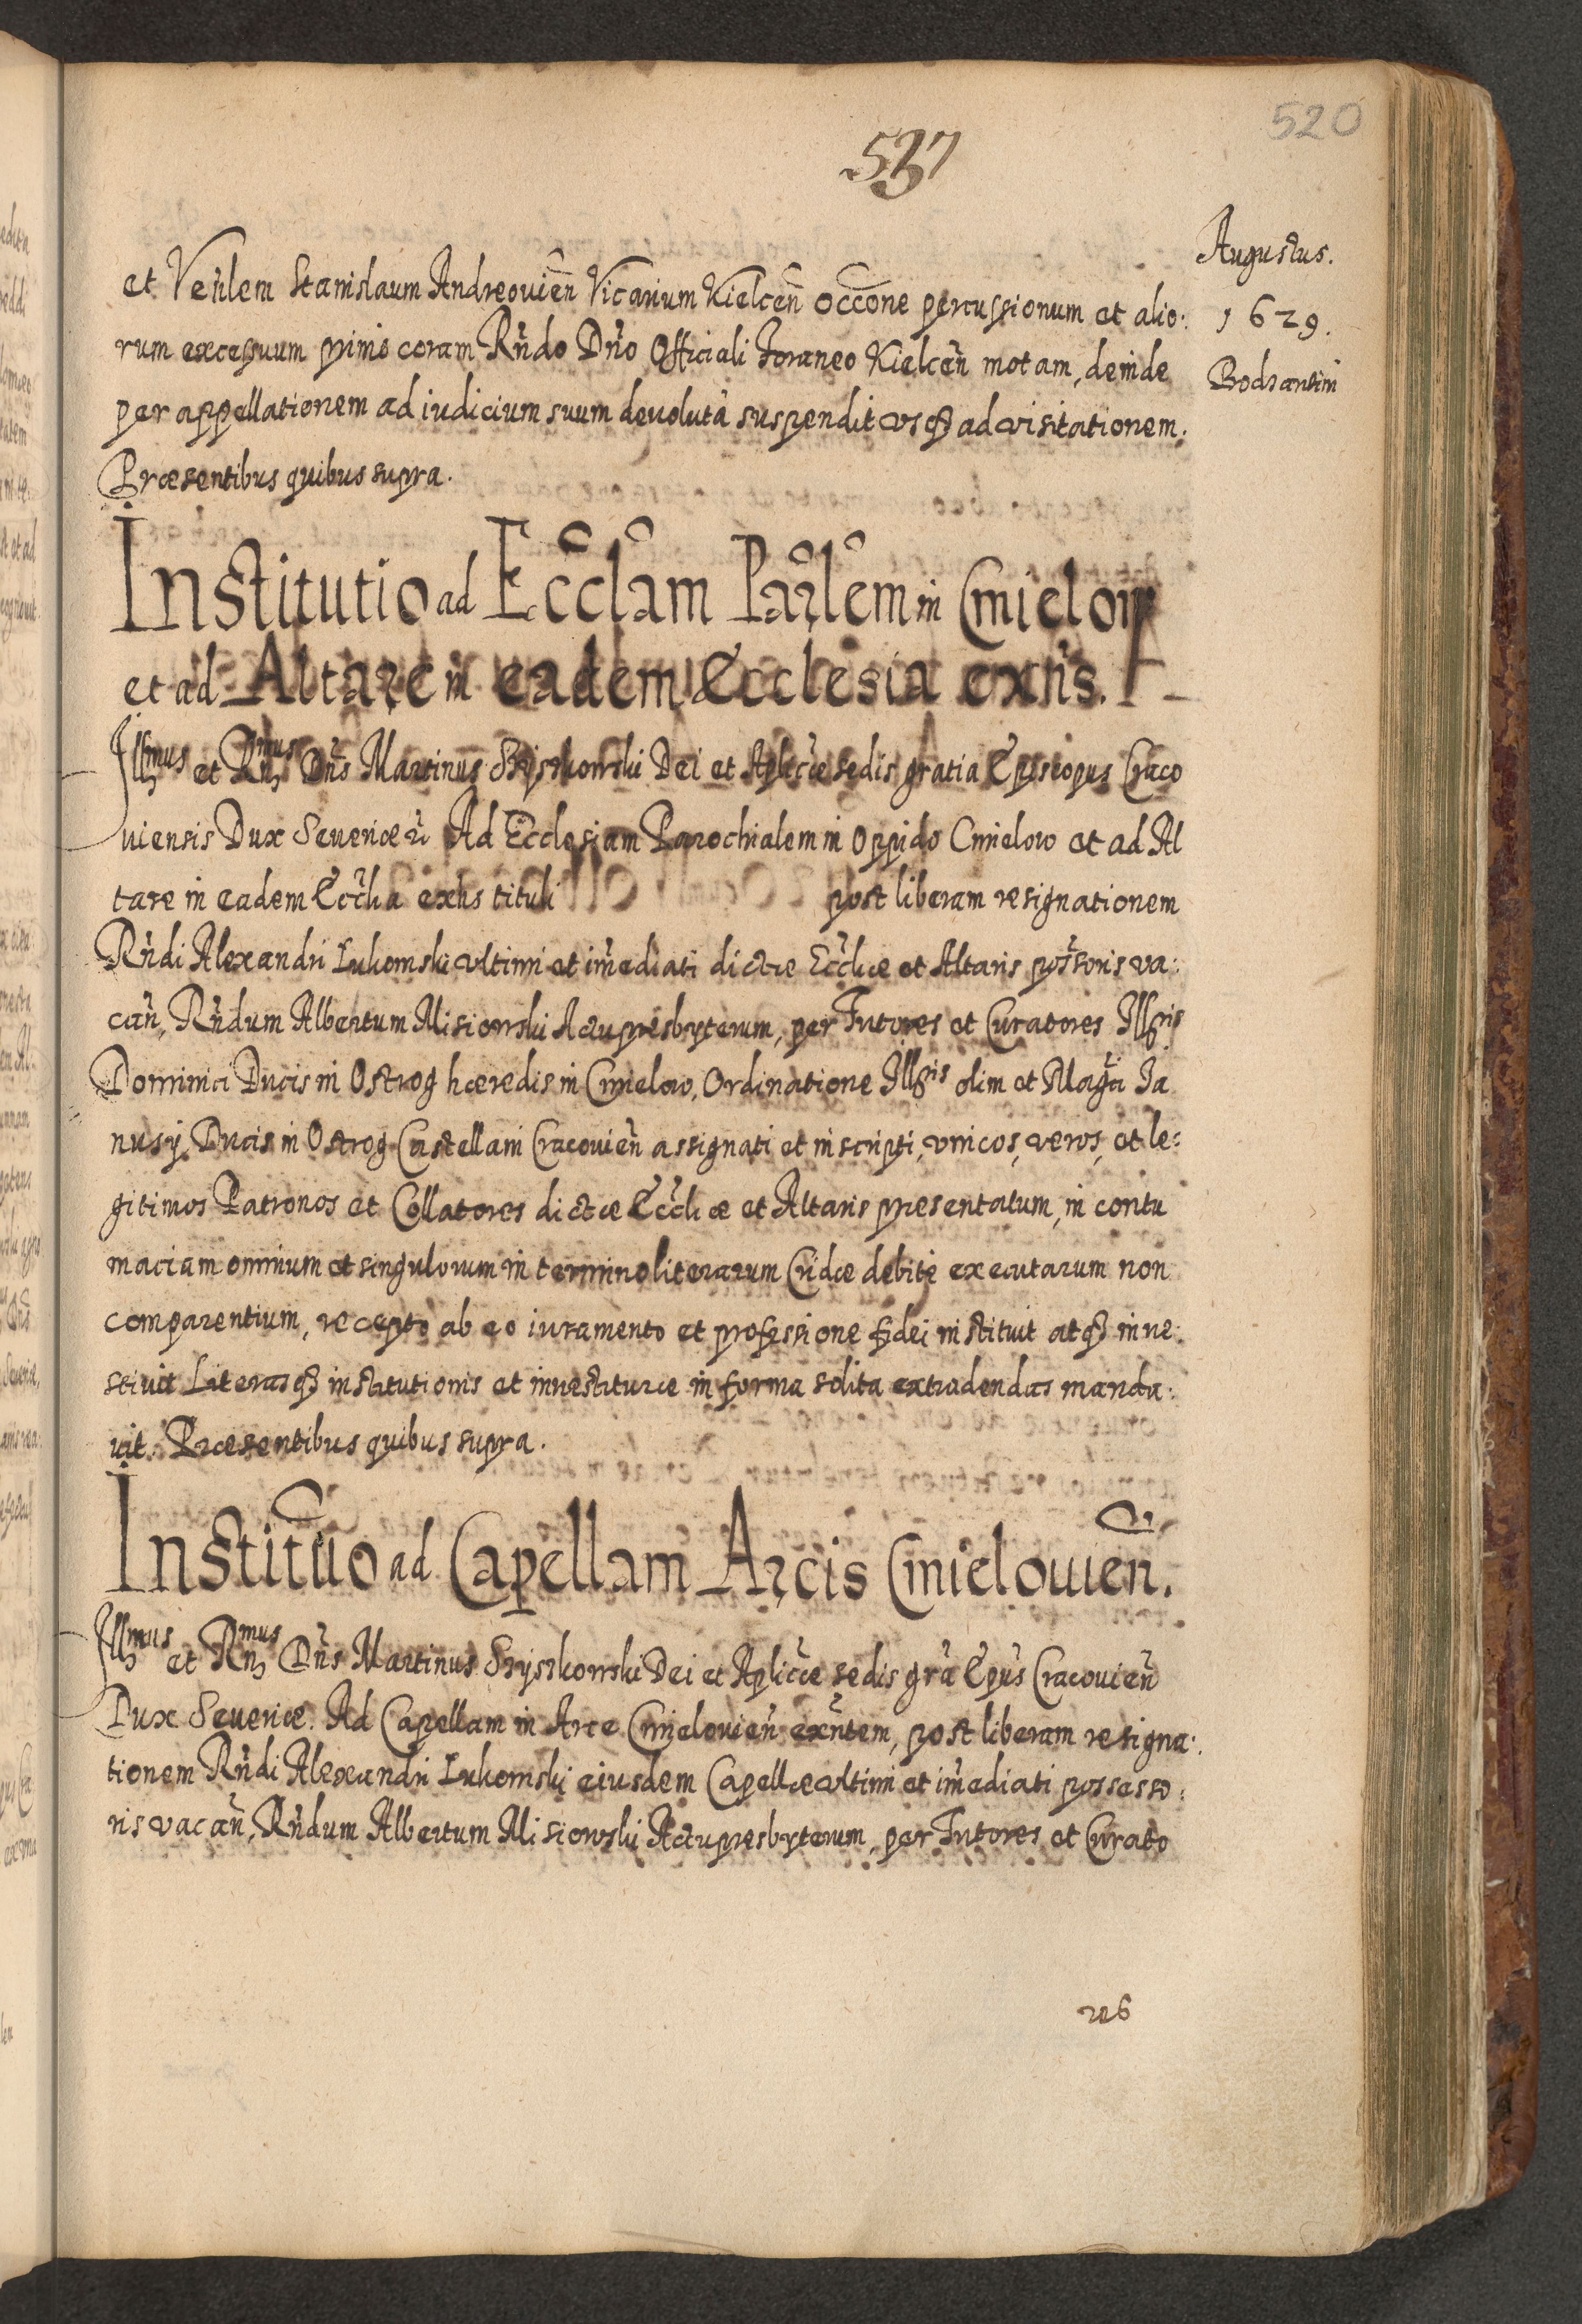 520
537
Augustus.
1629.
Bodzantin
et Venlem Stanislaum Andreouien Vicarium Kielcen occone percussionum et alio:
rum excessuum primo coram Rndo Dno Officiali Foraneo Kielcen motam, deinde
per appellationem ad iudicium suum deuoluta suspendit usq ad visitationem.
Præsentibus quibus supra.
Institutio ad Ecclam Parlem in Cmielow
et ad Altare in eadem Ecclesia exns.
Illmus et Rmus Dns Martinus Szyszkowski Dei et Aplicæ sedis gratia Episcopus Craco
uiensis Dux Seueriæ Ad Ecclesiam Parochialem in Oppido Cmielow et ad Al
tare in eadem Ecclia exns tituli post liberam resignationem
Rndi Alexandri Lukomski ultimi et imediati dictæ Eccliæ et Altaris possoris va:
can, Rndum Albertum Misiowski Actupresbyterum, per Tutores et Curatores Illris
Dominici Ducis in Ostrog hæredis in Cmielow, Ordinatione Illris olim et Magci Ja
nusij Ducis in Ostrog Castellani Cracouien assignati et inscripti, unicos, veros, et le:
gitimos Patronos et Collatores dictæ Eccliæ et Altaris presentatum, in contu
maciam omnium et singulorum in termino literarum Cridæ debite executarum non
comparentium, recepto ab eo iuramento et professione fidei instituit atq inue:
stiuit Literasq institutionis et inuestituræ in forma solita extradendas manda:
uit. Præsentibus quibus supra.
Institutio ad Capellam Arcis Cmielouien.
Illmus et Rmus Dns Martinus Szyszkowski Dei et Aplicæ sedis gra Epus Cracouien
Dux Seueriæ. Ad Capellam in Arce Cmielouien exntem, post liberam resigna:
tionem Rndi Alexandri Lukomski eiusdem Capellæ ultimi et imediati possesso:
ris vacan, Rndum Albertum Misiowski Actupresbyterum, per Tutores et Curato
res